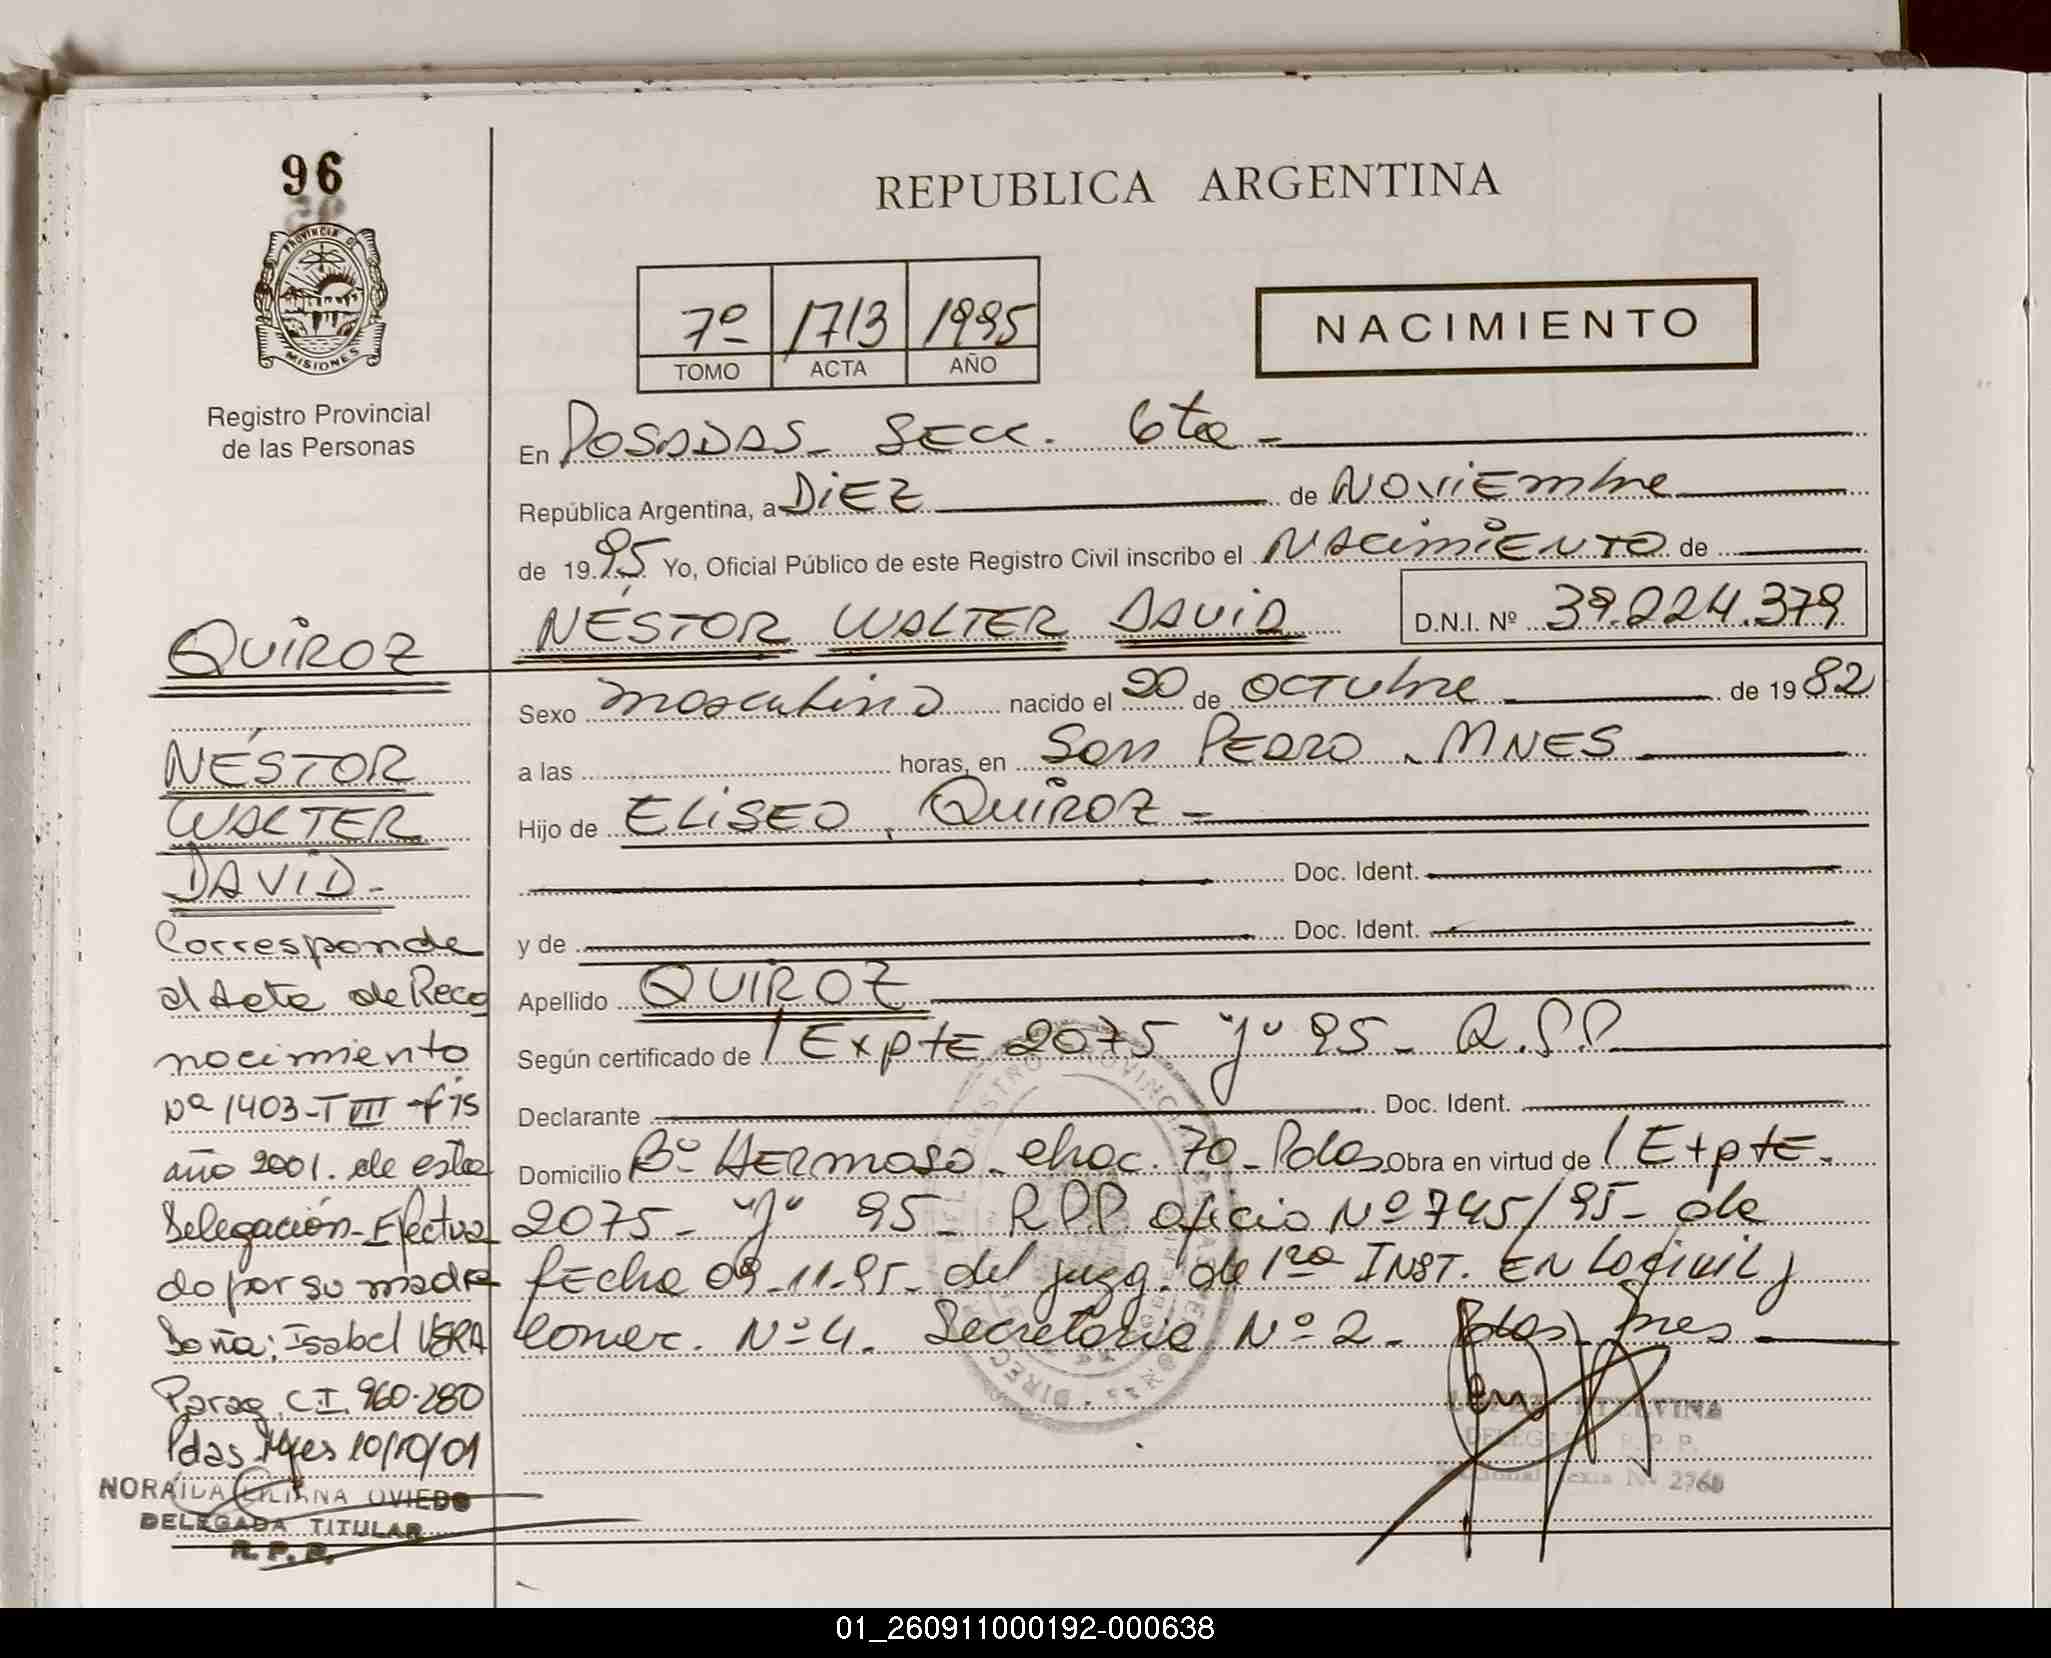 96
PROVINCIA DE
MISIONES
Registro Provincial
de las Personas
REPUBLICA ARGENTINA
7º 1713 1995
TOMO ACTA AÑO
NACIMIENTO
En POSADAS - SECC. 6ta -
República Argentina, a DIEZ de NOVIEMBRE
de 1995 Yo, Oficial Público de este Registro Civil inscribo el NACIMIENTO de
NÉSTOR WALTER DAVID D.N.I. Nº 39.224.379
Sexo masculino nacido el 20 de OCTUBRE de 1982
a las horas, en San PEDRO - MNES
Hijo de ELISEO QUIROZ -
Doc. Ident.
y de Doc. Ident.
Apellido QUIROZ
Según certificado de / Expte 2075 "J" 95 - R.P.P.
Declarante Doc. Ident.
Domicilio Bº HERMOSO - chac. 70 - Pdas. Obra en virtud de / Expte.
2075 - "J" 95 - RPP oficio Nº 745/95 - de
fecha 09-11-95 - del juzg. de 1ra INST. EN Lo civil y
comer. Nº 4. Secretaria Nº 2 - Pdas) Mnes
QUIROZ
NÉSTOR
WALTER
DAVID -
Corresponde
al Acta de Reco
nocimiento
Nº 1403 - T VIII - f 75
año 2001. de esta
Delegación - Efectua
do por su madre
Doña; Isabel VERA
Parag. C I. 960.280
Pdas. Mnes 10/10/01
NORAÍLDA LILIANA OVIEDO
DELEGADA TITULAR
R. P. P.
ETELVINA
DELEGADA R. P. P.
Sexta Nº 2760
01_260911000192-000638